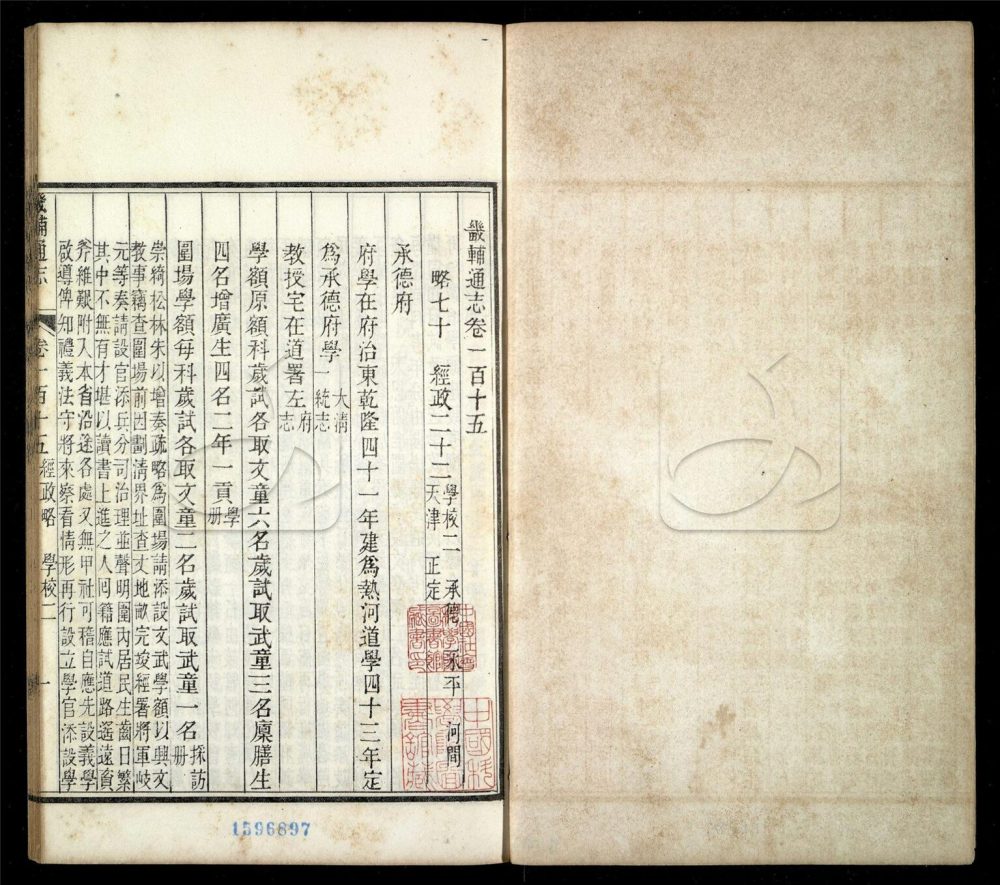 畿輔通志卷一百十五
略七十　經政二十二　學校二　承德　永平　河間
天津　正定
承德府
府學在府治東乾隆四十一年建爲熱河道學四十三年定
爲承德府學大淸
一統志
教授宅在道署左府
志
學額原額科歲試各取文童六名歲試取武童三名廩膳生
四名增廣生四名二年一貢學
册
圍場學額每科歲試各取文童二名歲試取武童一名採訪
册
崇綺松林朱以增奏疏略爲圍場請添設文武學額以興文
教事竊查圍場前因劃淸界址查丈地畝完竣經署將軍岐
元等奏請設官添兵分司治理並聲明圍內居民生齒日繁
其中不無有才堪以讀書上進之人囘籍應試道路遙遠資
斧維艱附入本省沿途各處又無甲社可稽自應先設義學
啟導俾知禮義法守將來察看情形再行設立學官添設學
畿輔通志　卷一百十五　經政略　學校二　一
中國科
學院圖
書館藏
1596897